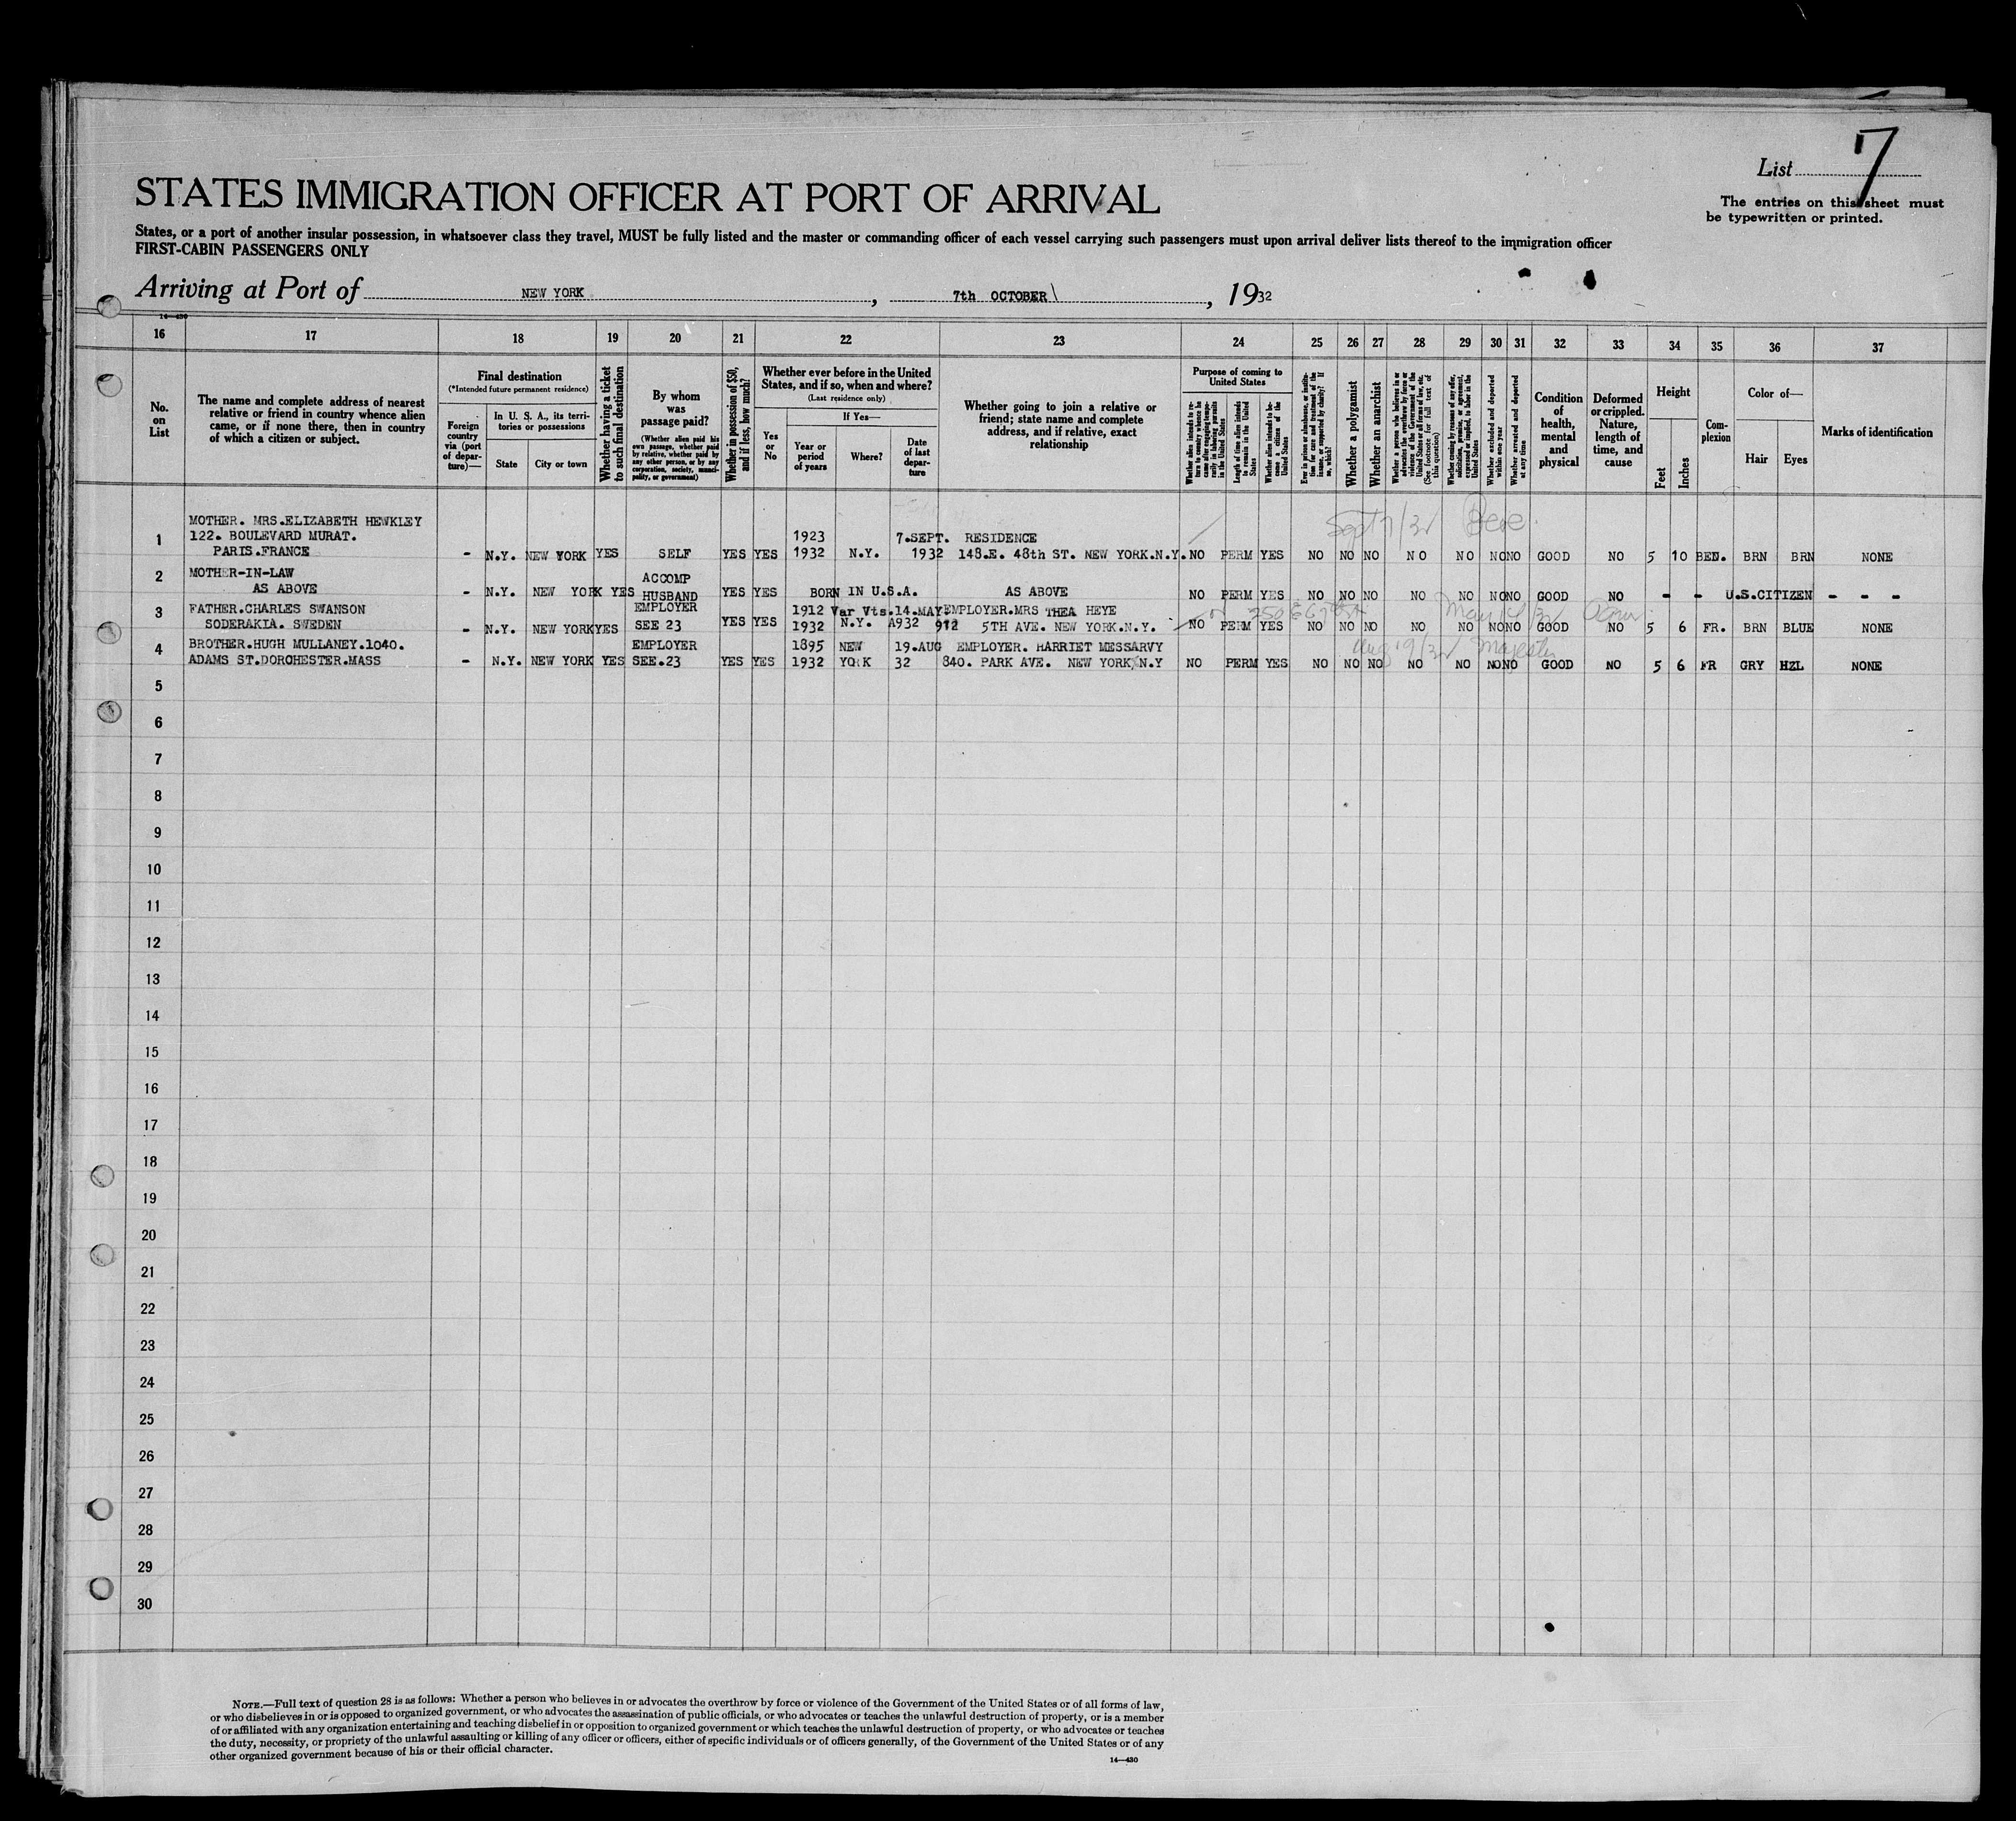 List 7
The entries on this sheet must
be typewritten or printed.
STATES IMMIGRATION OFFICER AT PORT OF ARRIVAL
States, or a port of another insular possession, in whatsoever class they travel, MUST be fully listed and the master or commanding officer of each vessel carrying such passengers must upon arrival deliver lists thereof to the immigration officer
FIRST-CABIN PASSENGERS ONLY
Arriving at Port of NEW YORK, 7th OCTOBER, 1932
14—430
16 17 18 19 20 21 22 23 24 25 26 27 28 29 30 31 32 33 34 35 36 37
No. on List
The name and complete address of nearest
relative or friend in country whence alien
came, or if none there, then in country
of which a citizen or subject.
Final destination
(*Intended future permanent residence)
Foreign country via (port of departure)—
In U. S. A., its territories or possessions
State
City or town
Whether having a ticket to such final destination
By whom was passage paid?
(Whether alien paid his own passage, whether paid by relative, whether paid by any other person, or by any corporation, society, municipality, or government)
Whether in possession of $50, and if less, how much?
Whether ever before in the United States, and if so, when and where?
(Last residence only)
Yes or No
If Yes—
Year or period of years
Where?
Date of last departure
Whether going to join a relative or
friend; state name and complete
address, and if relative, exact
relationship
Purpose of coming to United States
Whether alien intends to return to country whence he came after engaging temporarily in laboring pursuits in the United States
Length of time alien intends to remain in the United States
Whether alien intends to become a citizen of the United States
Ever in prison or almshouse, or institution for care and treatment of the insane, or supported by charity? If so, which?
Whether a polygamist
Whether an anarchist
Whether a person who believes in or advocates the overthrow by force or violence of the Government of the United States or all forms of law, etc. (See footnote for full text of this question)
Whether coming by reasons of any offer, solicitation, promise, or agreement, expressed or implied, to labor in the United States
Whether excluded and deported within one year
Whether arrested and deported at any time
Condition of health, mental and physical
Deformed or crippled. Nature, length of time, and cause
Height
Feet
Inches
Complexion
Color of—
Hair
Eyes
Marks of identification
Sept 7/32
MOTHER. MRS.ELIZABETH HEWKLEY
1 122. BOULEVARD MURAT. 1923 7.SEPT. RESIDENCE
PARIS.FRANCE - N.Y. NEW YORK YES SELF YES YES 1932 N.Y. 1932 148.E. 48th ST. NEW YORK.N.Y. NO PERM YES NO NO NO NO NO NO NO GOOD NO 5 10 BED. BRN BRN NONE
2 MOTHER-IN-LAW ACCOMP
AS ABOVE - N.Y. NEW YORK YES HUSBAND YES YES BORN IN U.S.A. AS ABOVE NO PERM YES NO NO NO NO NO NO NO GOOD NO - - U.S.CITIZEN - - -
3 FATHER.CHARLES SWANSON EMPLOYER 1912 Var Vts. 14.MAY EMPLOYER.MRS THEA HEYE 250 E 67 St May 14/32
SODERAKIA. SWEDEN - N.Y. NEW YORK YES SEE 23 YES YES 1932 N.Y. 1932 912 5TH AVE. NEW YORK.N.Y. NO PERM YES NO NO NO NO NO NO NO GOOD NO 5 6 FR. BRN BLUE NONE
4 BROTHER.HUGH MULLANEY.1040. EMPLOYER 1895 NEW 19.AUG EMPLOYER. HARRIET MESSARVY Aug 19/32 Majestic
ADAMS ST.DORCHESTER.MASS - N.Y. NEW YORK YES SEE.23 YES YES 1932 YORK 32 840. PARK AVE. NEW YORK N.Y NO PERM YES NO NO NO NO NO NO NO GOOD NO 5 6 FR GRY HZL NONE
5
6
7
8
9
10
11
12
13
14
15
16
17
18
19
20
21
22
23
24
25
26
27
28
29
30
NOTE.—Full text of question 28 is as follows: Whether a person who believes in or advocates the overthrow by force or violence of the Government of the United States or of all forms of law,
or who disbelieves in or is opposed to organized government, or who advocates the assassination of public officials, or who advocates or teaches the unlawful destruction of property, or is a member
of or affiliated with any organization entertaining and teaching disbelief in or opposition to organized government or which teaches the unlawful destruction of property, or who advocates or teaches
the duty, necessity, or propriety of the unlawful assaulting or killing of any officer or officers, either of specific individuals or of officers generally, of the Government of the United States or of any
other organized government because of his or their official character.
14—430